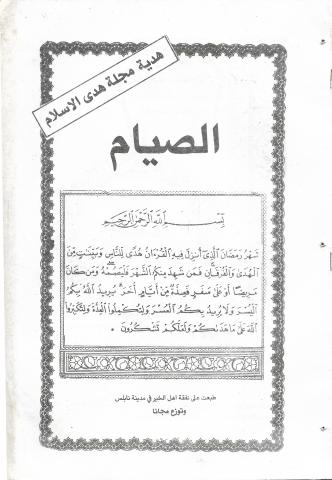 هدية مجلة هدى الاسلام
الصيام
بِسْمِ اللَّهِ الرَّحْمَٰنِ الرَّحِيمِ
شَهْرُ رَمَضَانَ الَّذِي أُنزِلَ فِيهِ الْقُرْءَانُ هُدًى لِّلنَّاسِ وَبَيِّنَٰتٍ مِّنَ
الْهُدَىٰ وَالْفُرْقَانِ فَمَن شَهِدَ مِنكُمُ الشَّهْرَ فَلْيَصُمْهُ وَمَن كَانَ
مَرِيضًا أَوْ عَلَىٰ سَفَرٍ فَعِدَّةٌ مِّنْ أَيَّامٍ أُخَرَ يُرِيدُ اللَّهُ بِكُمُ
الْيُسْرَ وَلَا يُرِيدُ بِكُمُ الْعُسْرَ وَلِتُكْمِلُوا الْعِدَّةَ وَلِتُكَبِّرُوا
اللَّهَ عَلَىٰ مَا هَدَىٰكُمْ وَلَعَلَّكُمْ تَشْكُرُونَ
طبعت على نفقة اهل الخير في مدينة نابلس
وتوزع مجانا